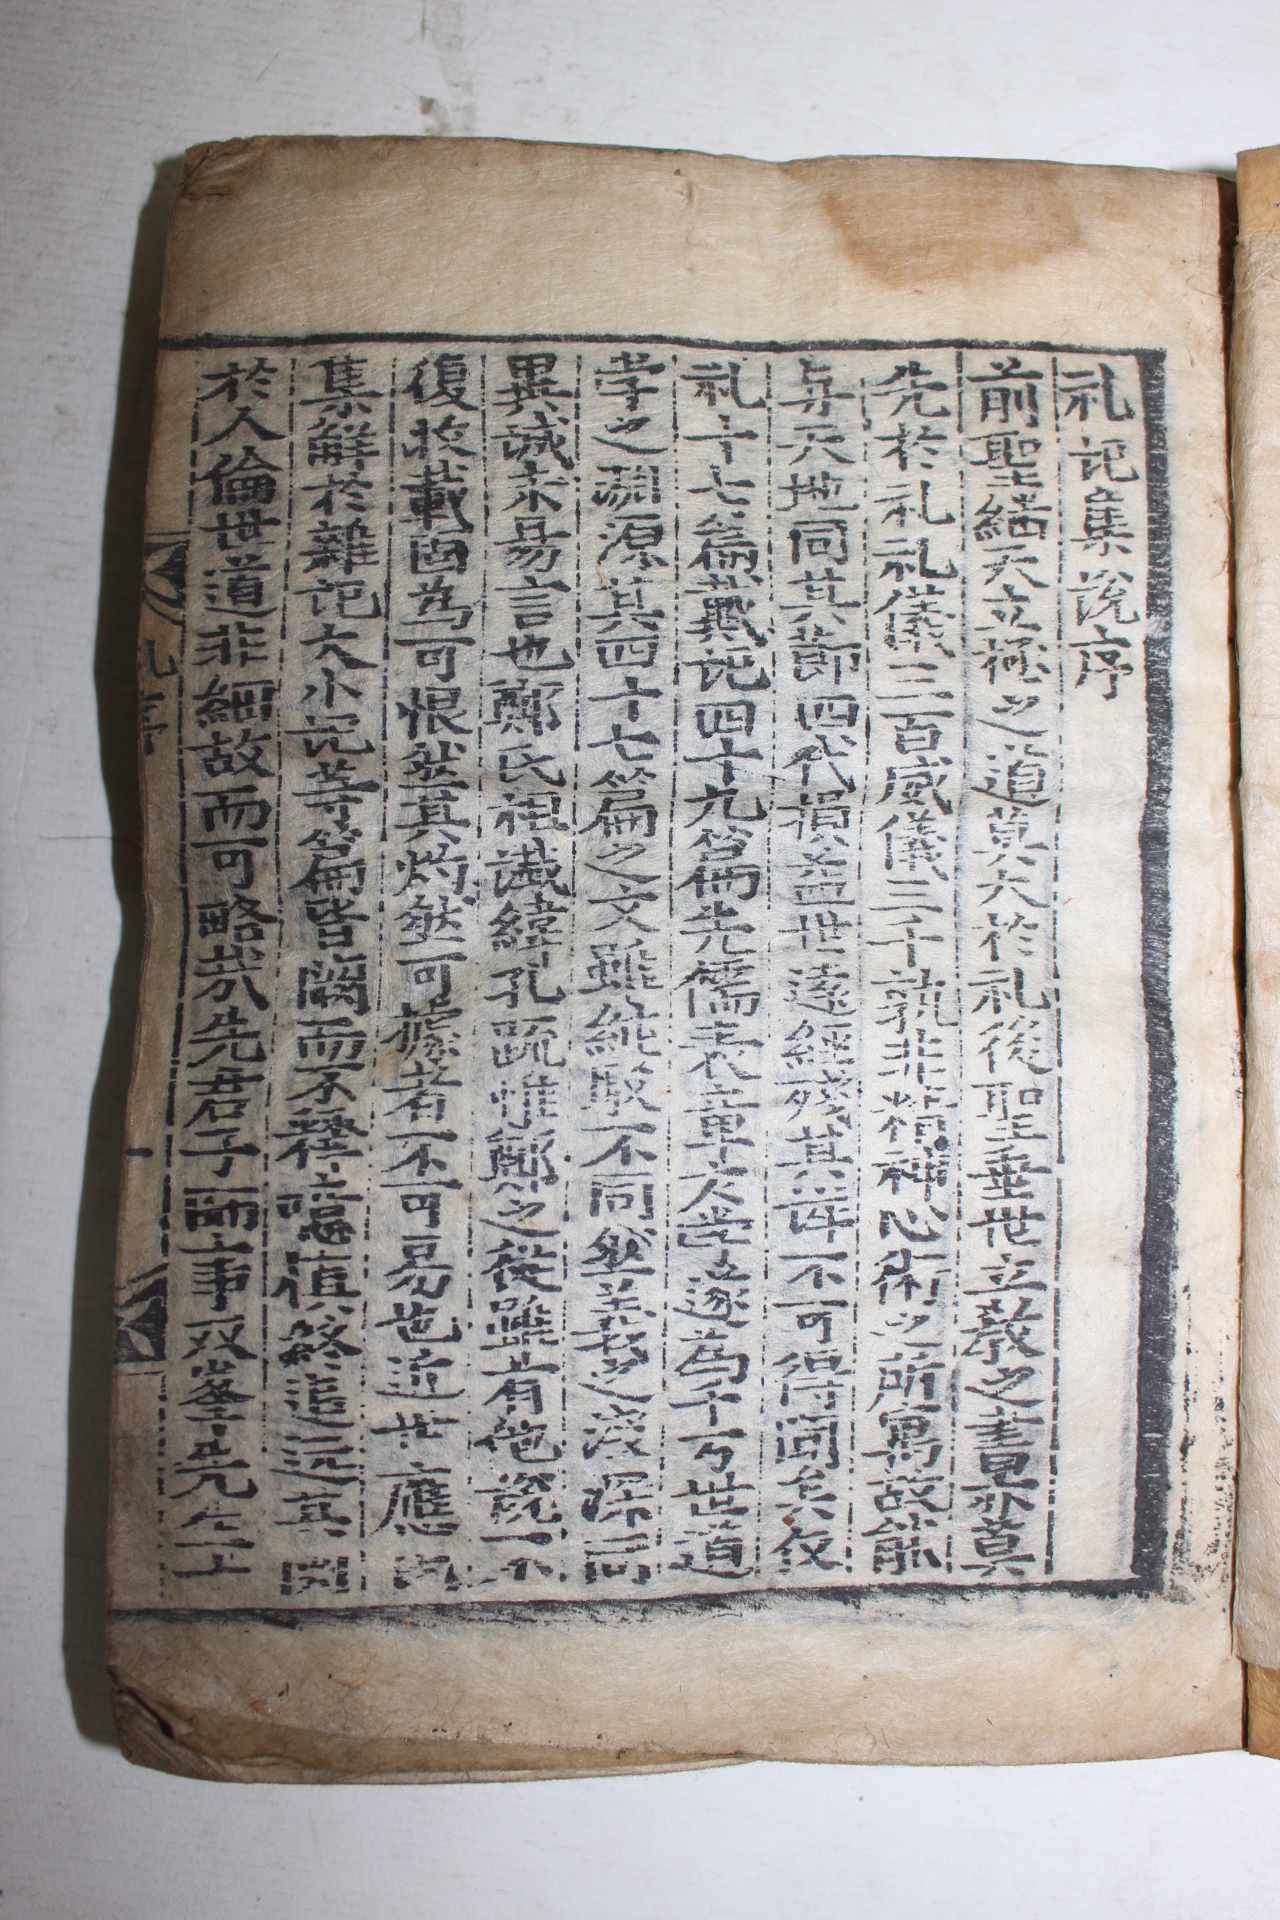 礼記集說序
前聖繼天立極之道莫大於礼後聖垂世立敎之書亦莫
先於礼礼儀三百威儀三千孰非精神心術之所寓故能
与天地同其節四代損益世遠經殘其詳不可得聞矣仪
礼十七篇戴記四十九篇先儒表章大学遂為千万世道
学之淵源其四十七篇之文雖純駁不同然義之淺深同
異誠未易言也鄭氏祖讖緯孔疏惟鄭之從雖有他說不
復收載固為可恨然其灼然可據者不可易也近世應氏
集解於雜記大小記等篇皆闕而不釋噫愼終追遠其関
於人倫世道非細故而可略哉先君子師事双峯先生十
礼序